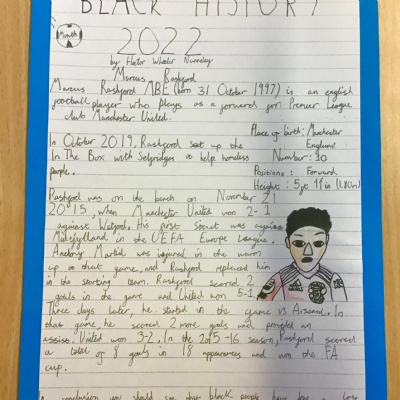 BLACK HISTORY
Month
2022
by Hector Wheeler Nunneley
Marcus Rashford
Marcus Rashford MBE (born 31 October 1997) is an english
football player who plays as a forward for Premier League
club Manchester United.
Place of birth: Manchester
England
In October 2019, Rashford set up the
In The Box with Selfridges to help homeless
people.
Number: 10
Positions: Forward
Height: 5ft 11in (1.80m)
Rashford was on the bench on November 21
2015, when Manchester United won 2-1
against Watford. His first was against
Midtjylland in the UEFA Europe League.
Anthony Martial was injured in the warm
up to that game, and Rashford replaced him
in the starting team. Rashford scored 2
goals in the game and United won 5-1.
Three days later, he started in the game vs Arsenal. In
that game, he scored 2 more goals and provided an
assist. United won 3-2. In the 2015-16 season, Rashford scored
a total of 8 goals in 18 appearances and won the FA
cup.
conclusion you should see that black people have